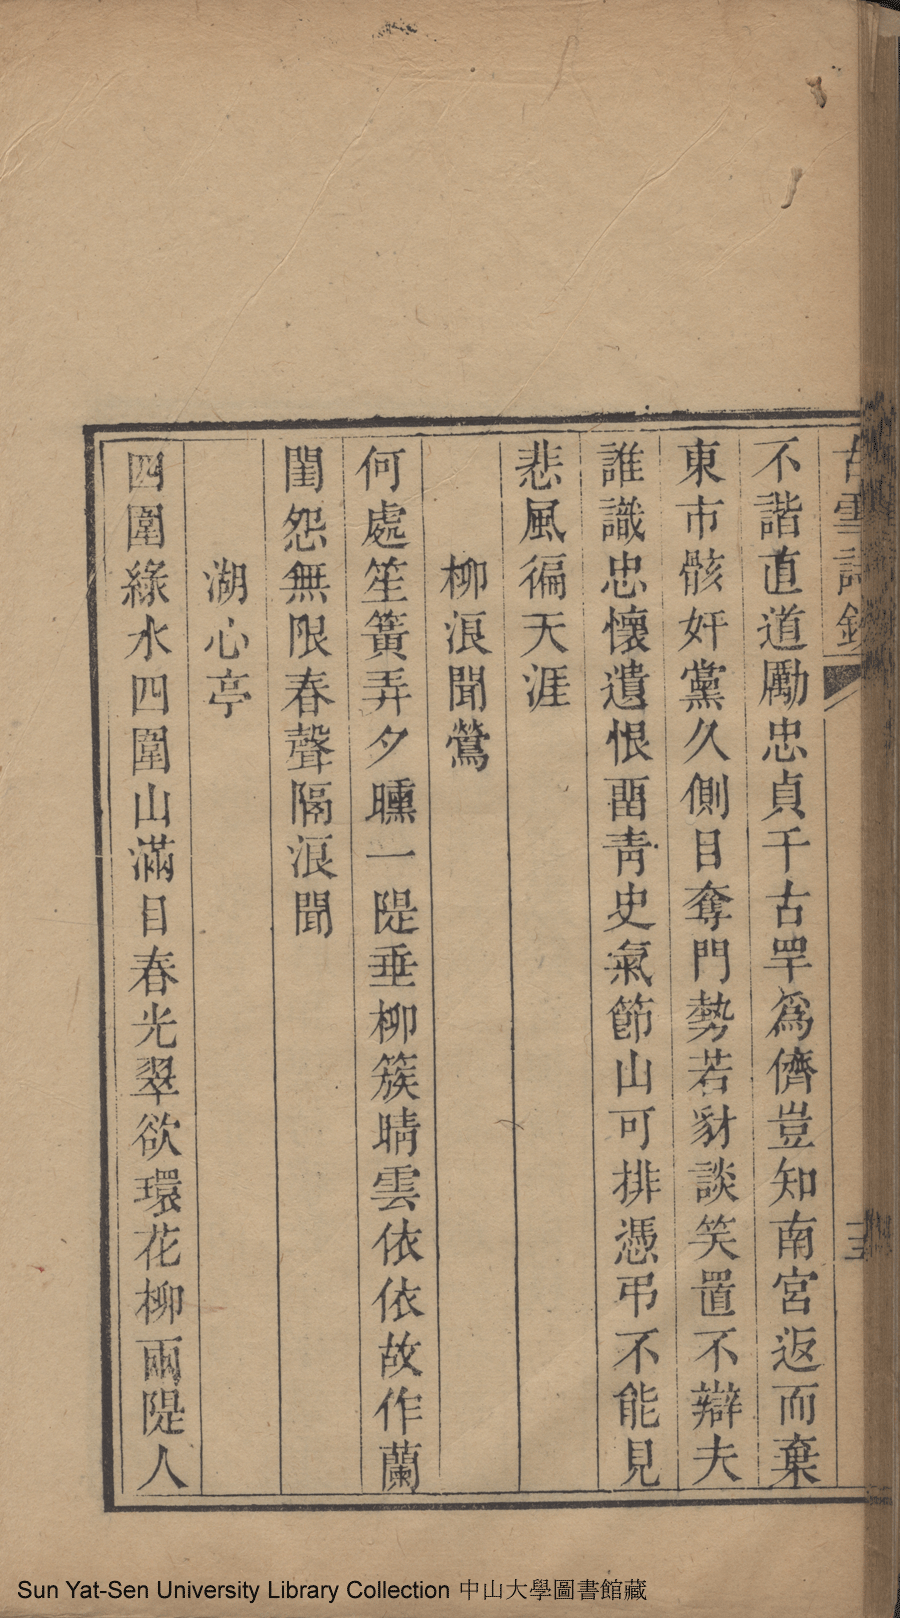 古雪詩鈔
十三
不諧直道勵忠貞千古罕為儕豈知南宮返而棄
東市骸奸黨久側目奪門勢若豺談笑置不辯夫
誰識忠懷遺恨畱青史氣節山可排憑弔不能見
悲風徧天涯
柳浪聞鶯
何處笙簧弄夕曛一隄垂柳簇晴雲依依故作蘭
閨怨無限春聲隔浪聞
湖心亭
四圍綠水四圍山滿目春光翠欲環花柳兩隄人
Sun Yat-Sen University Library Collection 中山大學圖書館藏